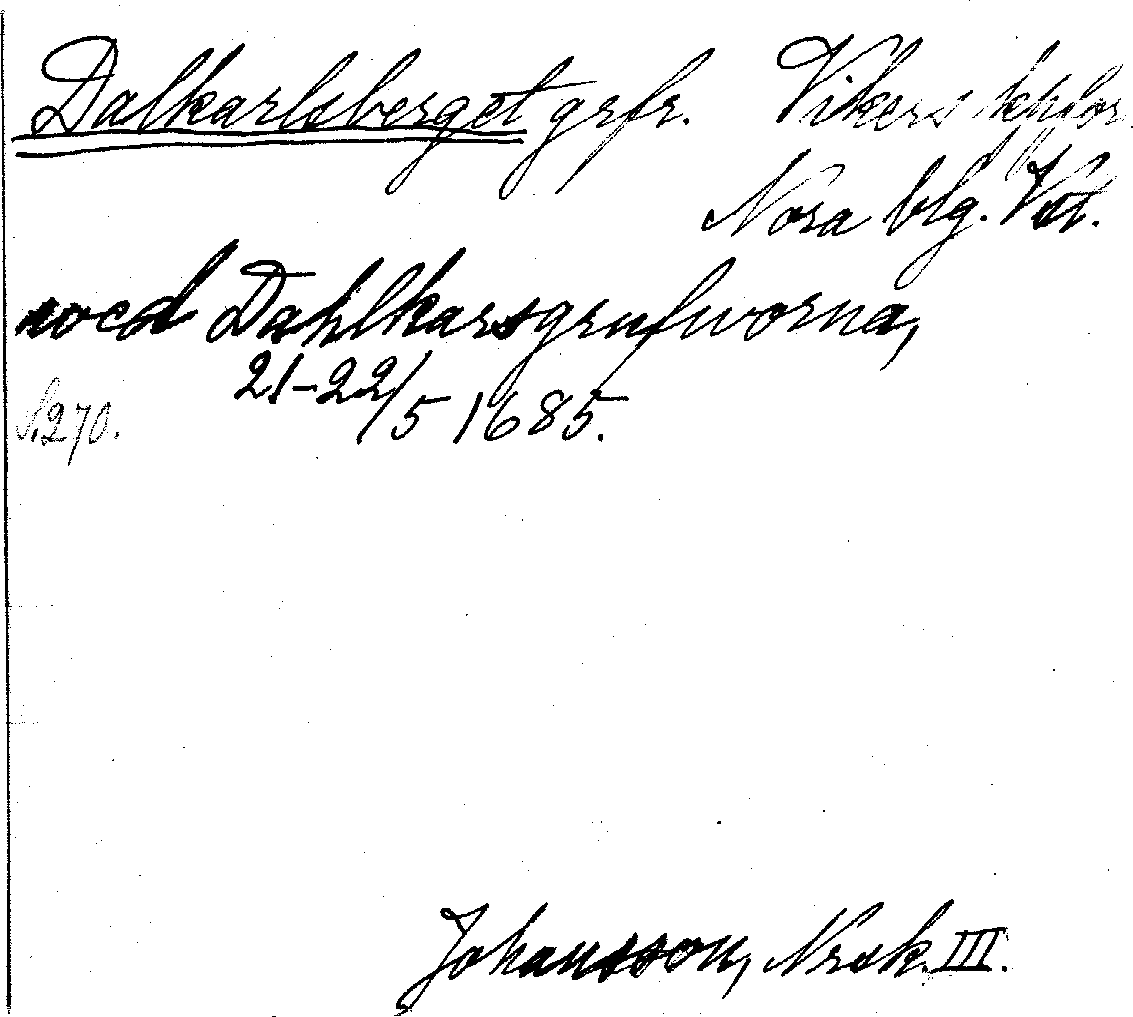 Dalkarlsberget grfr. Vikers kplfor.
Nora blg. Vstm.
wed Dahlkarsgrufworna,
21-22/5 1685.
S. 270.
Johansson, Nrsk. III.